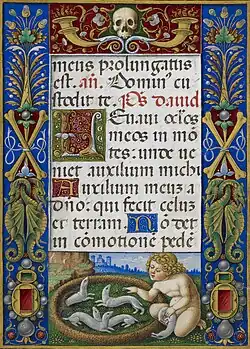 meus prolungatus
est. añ. Dominꝰ cu
stodit te. p̄s dauid
Leuaui oclos
meos in mō
tes: unde ue
niet auxilium michi
Auxilium meuꝫ a
dño. qui fecit celuꝫ
et terram. Nō det
in cōmotionē pedē